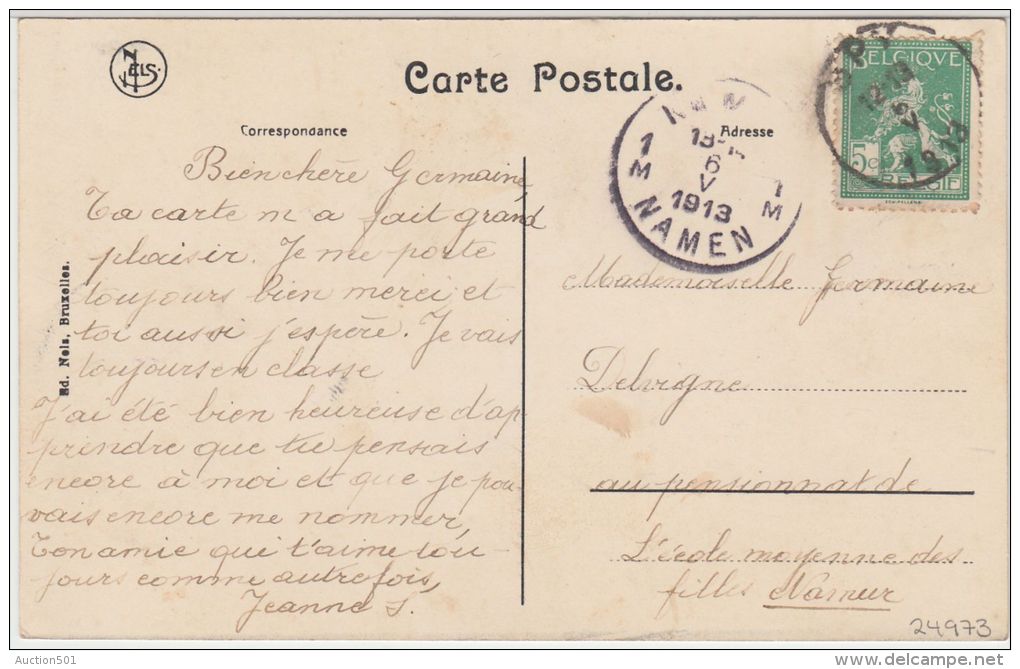 NELS.
Carte Postale.
Correspondance
Adresse
BELGIQUE
5c
BELGIË
1913
1 M
1 M
6
V
1913
NAMEN
Bien chère Germaine,
Ta carte m a fait grand
plaisir. Je me porte
toujours bien merci et
toi aussi j'espère. Je vais
toujours en classe
J'ai été bien heureuse d'ap
prendre que tu pensais
encore à moi et que je pou
vais encore me nommer,
Ton amie qui t'aime tou-
jours comme autrefois,
Jeanne S.
Mademoiselle Germaine
Delvigne
au pensionnat de
L'école moyenne des
filles Namur
24973
Ed. Nels, Bruxelles.
Auction501
delcampe.net